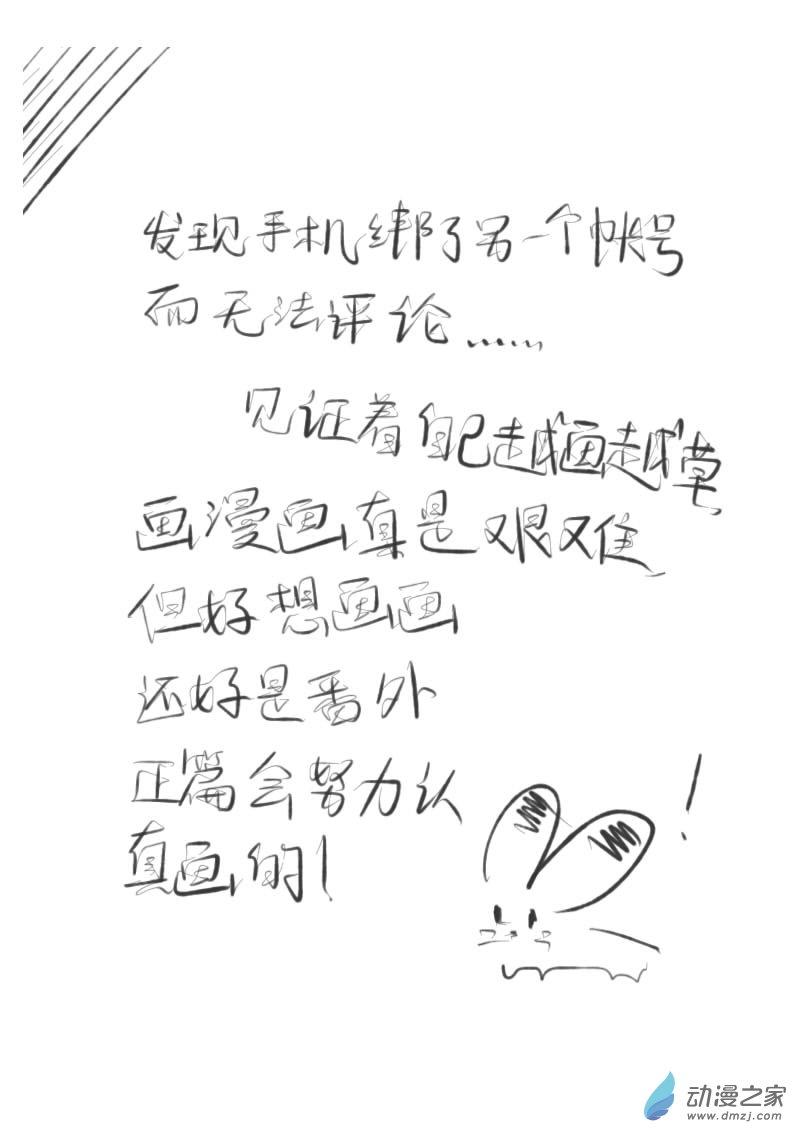 发现手机绑了另一个帐号
而无法评论......
见证着自己越画越草
画漫画真是艰难
但好想画画
还好是番外
正篇会努力认
真画的!
!
动漫之家
www.dmzj.com